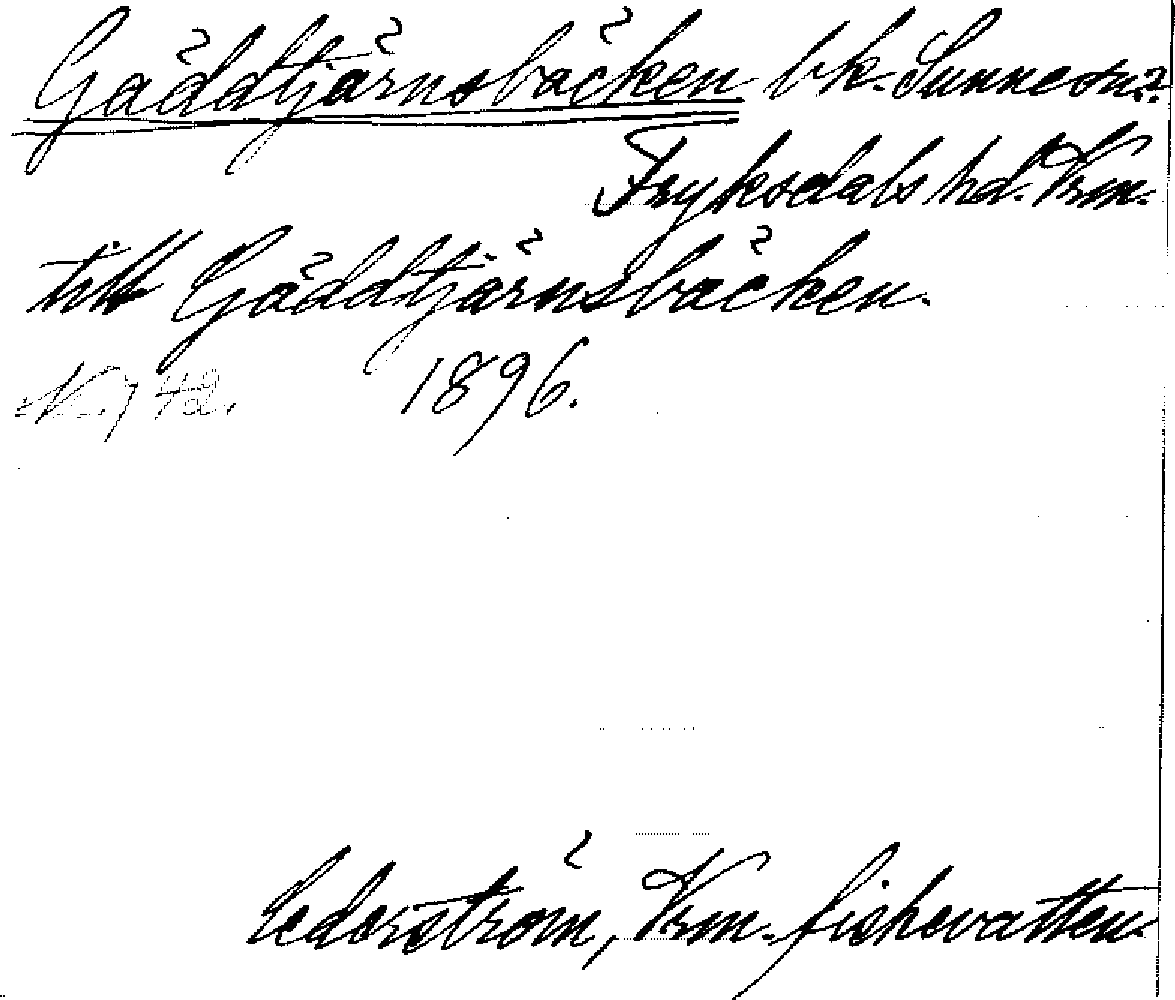 Gäddtjärnsbäcken bk. Sunne sn?
Fryksdals hd. Vrm.
till Gäddtjärnsbäcken.
1896.
Cederström, Vrm. fiskevatten.